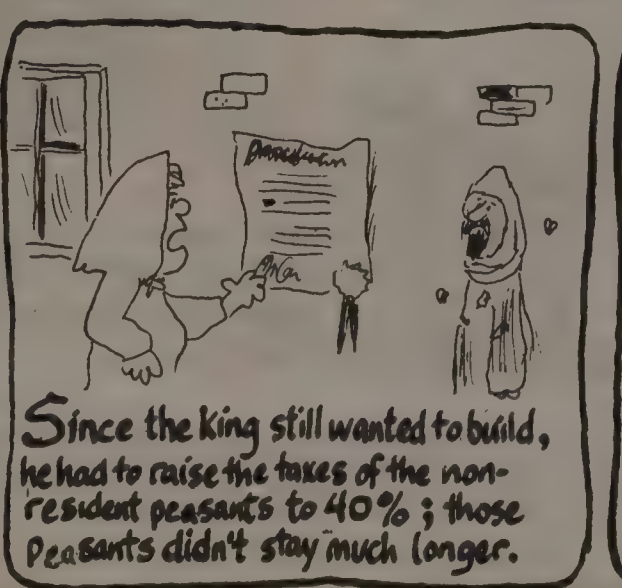 Since the king still wanted to build,
he had to raise the taxes of the non-
resident peasants to 40% ; those
Peasants didn't stay much longer.